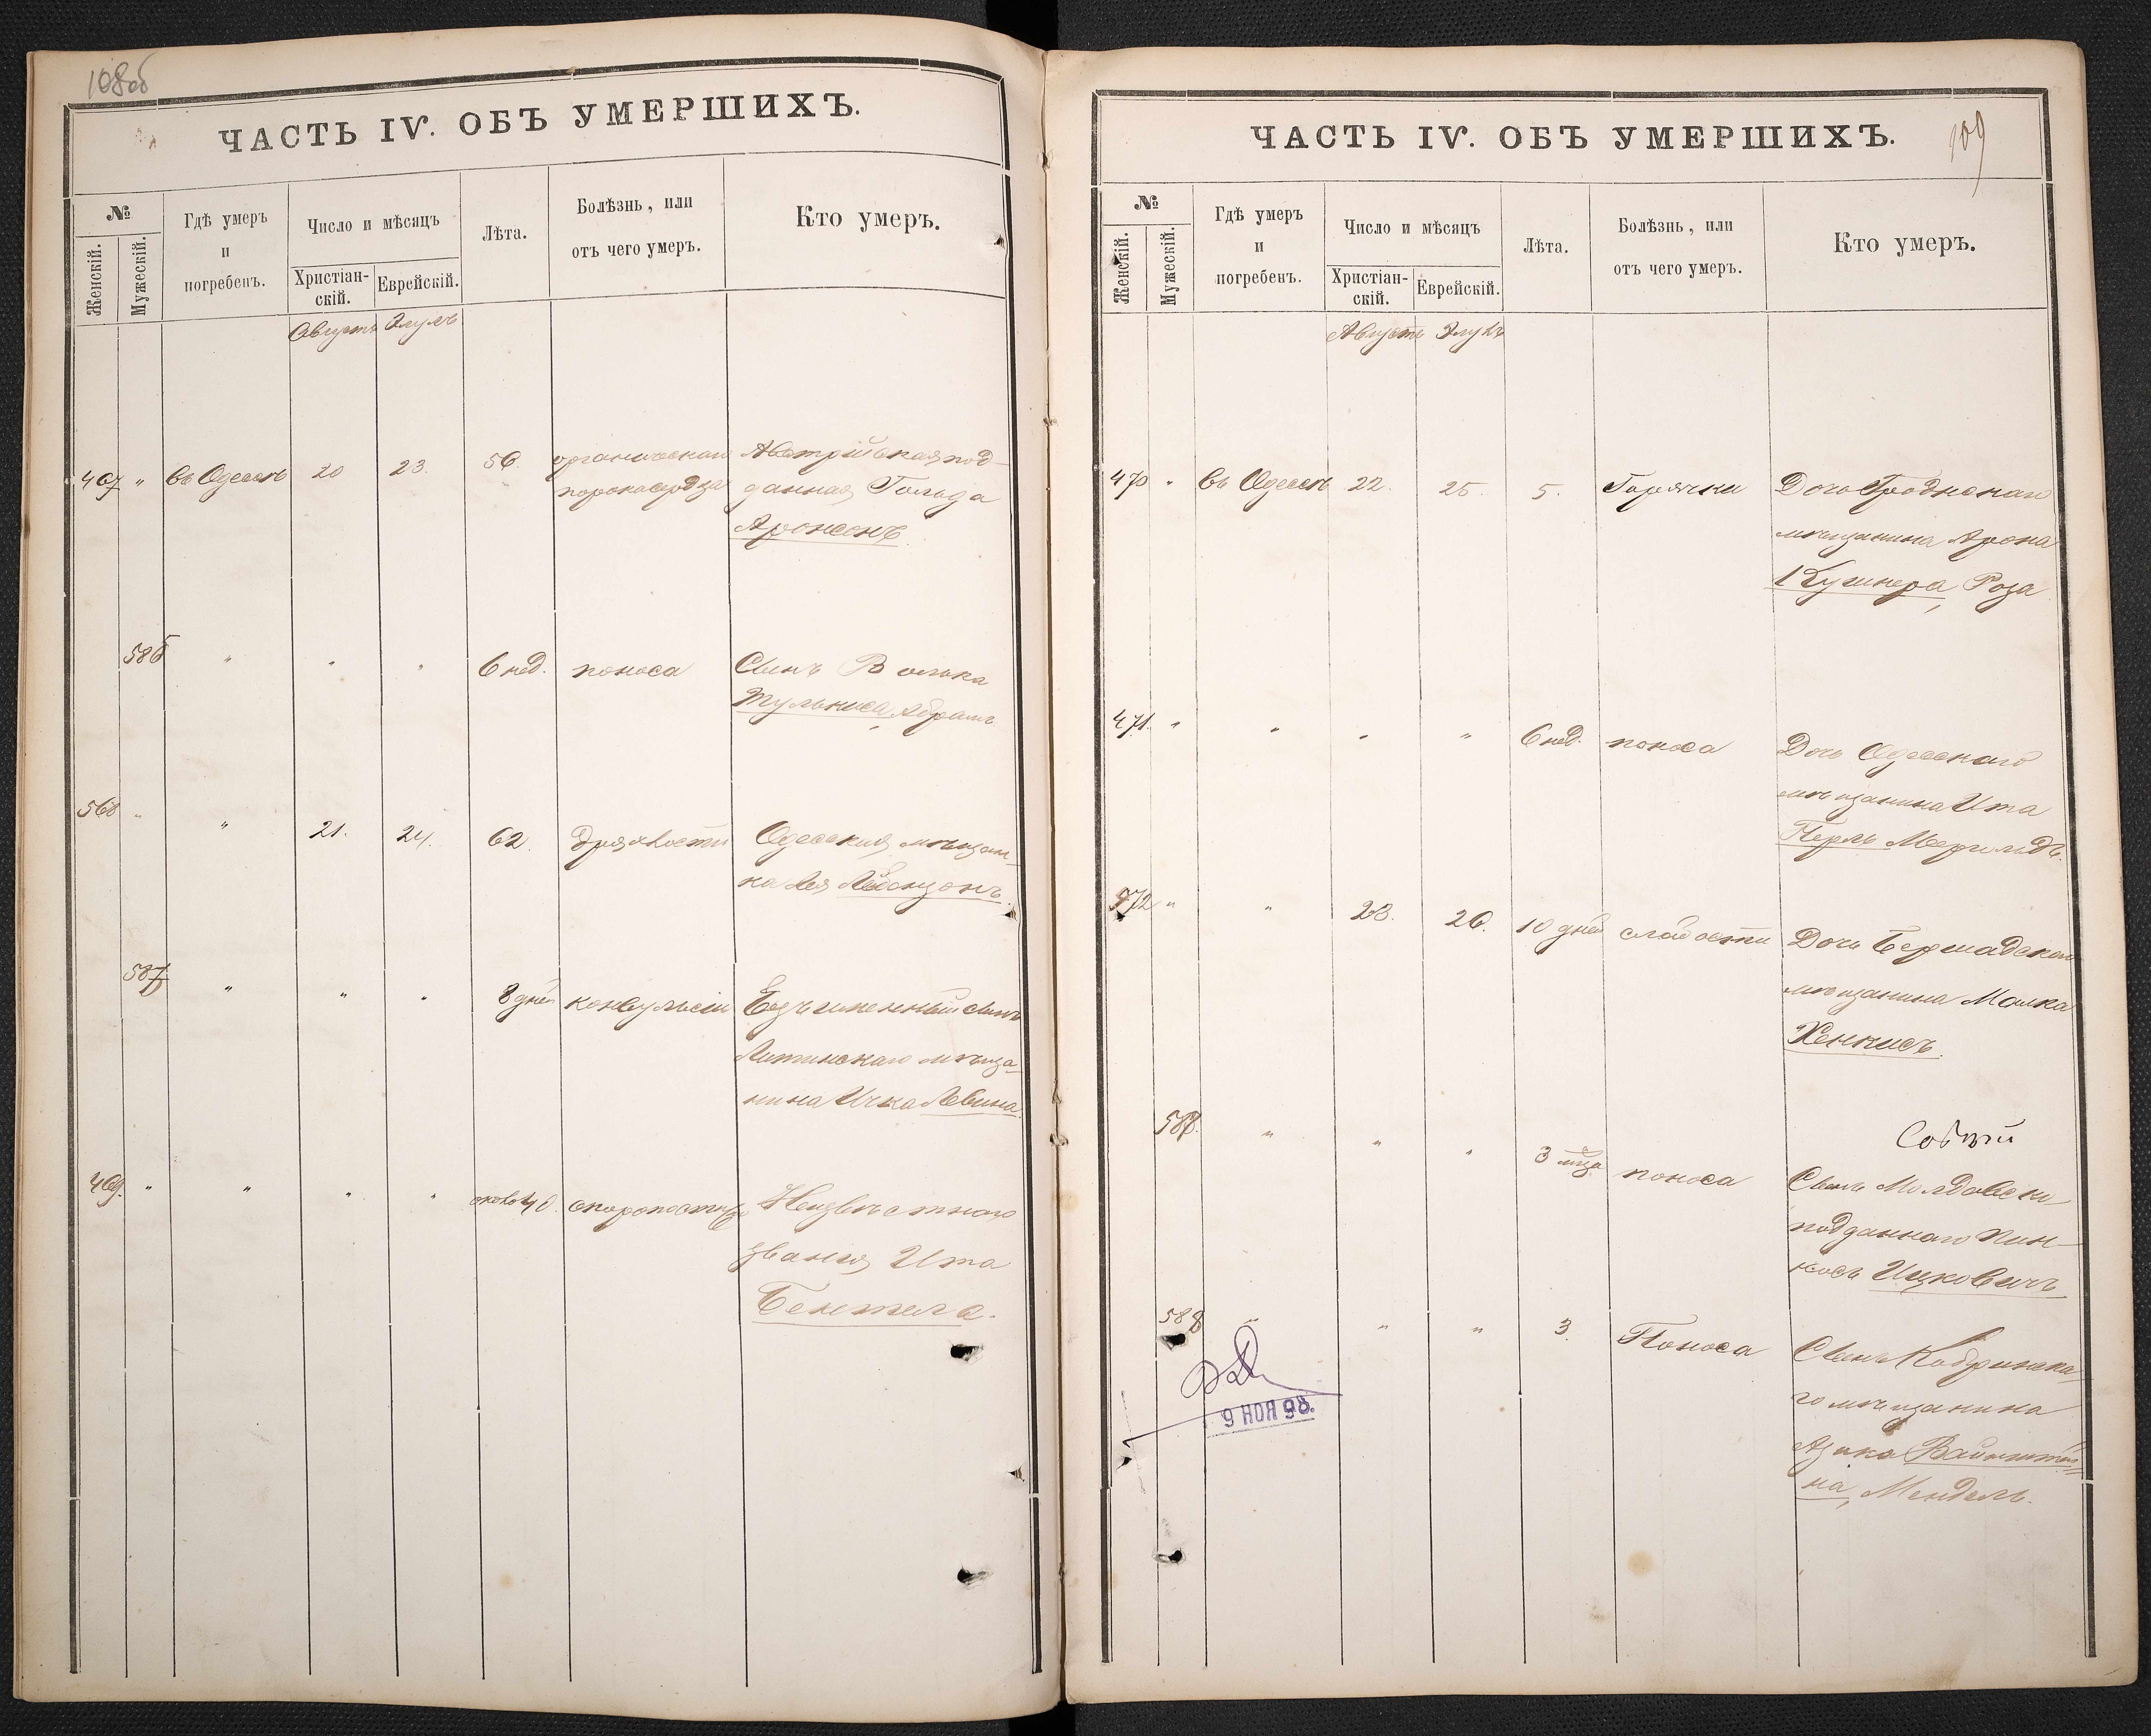 108об
ЧАСТЬ IV. ОБЪ УМЕРШИХЪ.
№
Женскій.
Мужескій.
Гдѣ умеръ
и
погребенъ.
Число и мѣсяцъ
Христіан-
скій.
Еврейскій.
Лѣта.
Болѣзнь, или
отъ чего умеръ.
Кто умеръ.
Августъ Элулъ
467 " въ Одессѣ 20 23. 56. органическаго Австрійская под-
порока сердца данная Гольда
Аронсонъ.
586 " " " 6 нед. поноса Сынъ Волька
Тульчиса, Абрамъ
568 " " 21. 24. 62. дряхлости Одесская мѣщан-
ка Лея Лебензонъ.
587 " " " 8 дней конвульсіи Безъименный сынъ
Литинскаго мѣща-
нина Ичка Левина.
469. " " " " около 40. скоропостижно Неизвѣстнаго
званія Ита
109
ЧАСТЬ IV. ОБЪ УМЕРШИХЪ.
№
Женскій.
Мужескій.
Гдѣ умеръ
и
погребенъ.
Число и мѣсяцъ
Христіан-
скій.
Еврейскій.
Лѣта.
Болѣзнь, или
отъ чего умеръ.
Кто умеръ.
Августъ Элулъ
470 " въ Одессѣ 22. 25. 5. Горячки Дочь Гродненскаго
мѣщанина Арона
Кушнера, Роза
471. " " " " 6 нед. поноса Дочь Одесскаго
мѣщанина Ита
Перль
472 " " 23. 26. 10 дней слабости Дочь Бершадскаго
мѣщанина Малка
Хенкисъ.
588. " " " 3 мѣс. поноса
Сынъ Молдавско-
подданнаго Пин-
косъ Ицковичъ
589 " " " 3. Поноса Сынъ Кобринска-
го мѣщанина
Азика Вайнштей-
на, Мендель.
6 НОЯ 98.